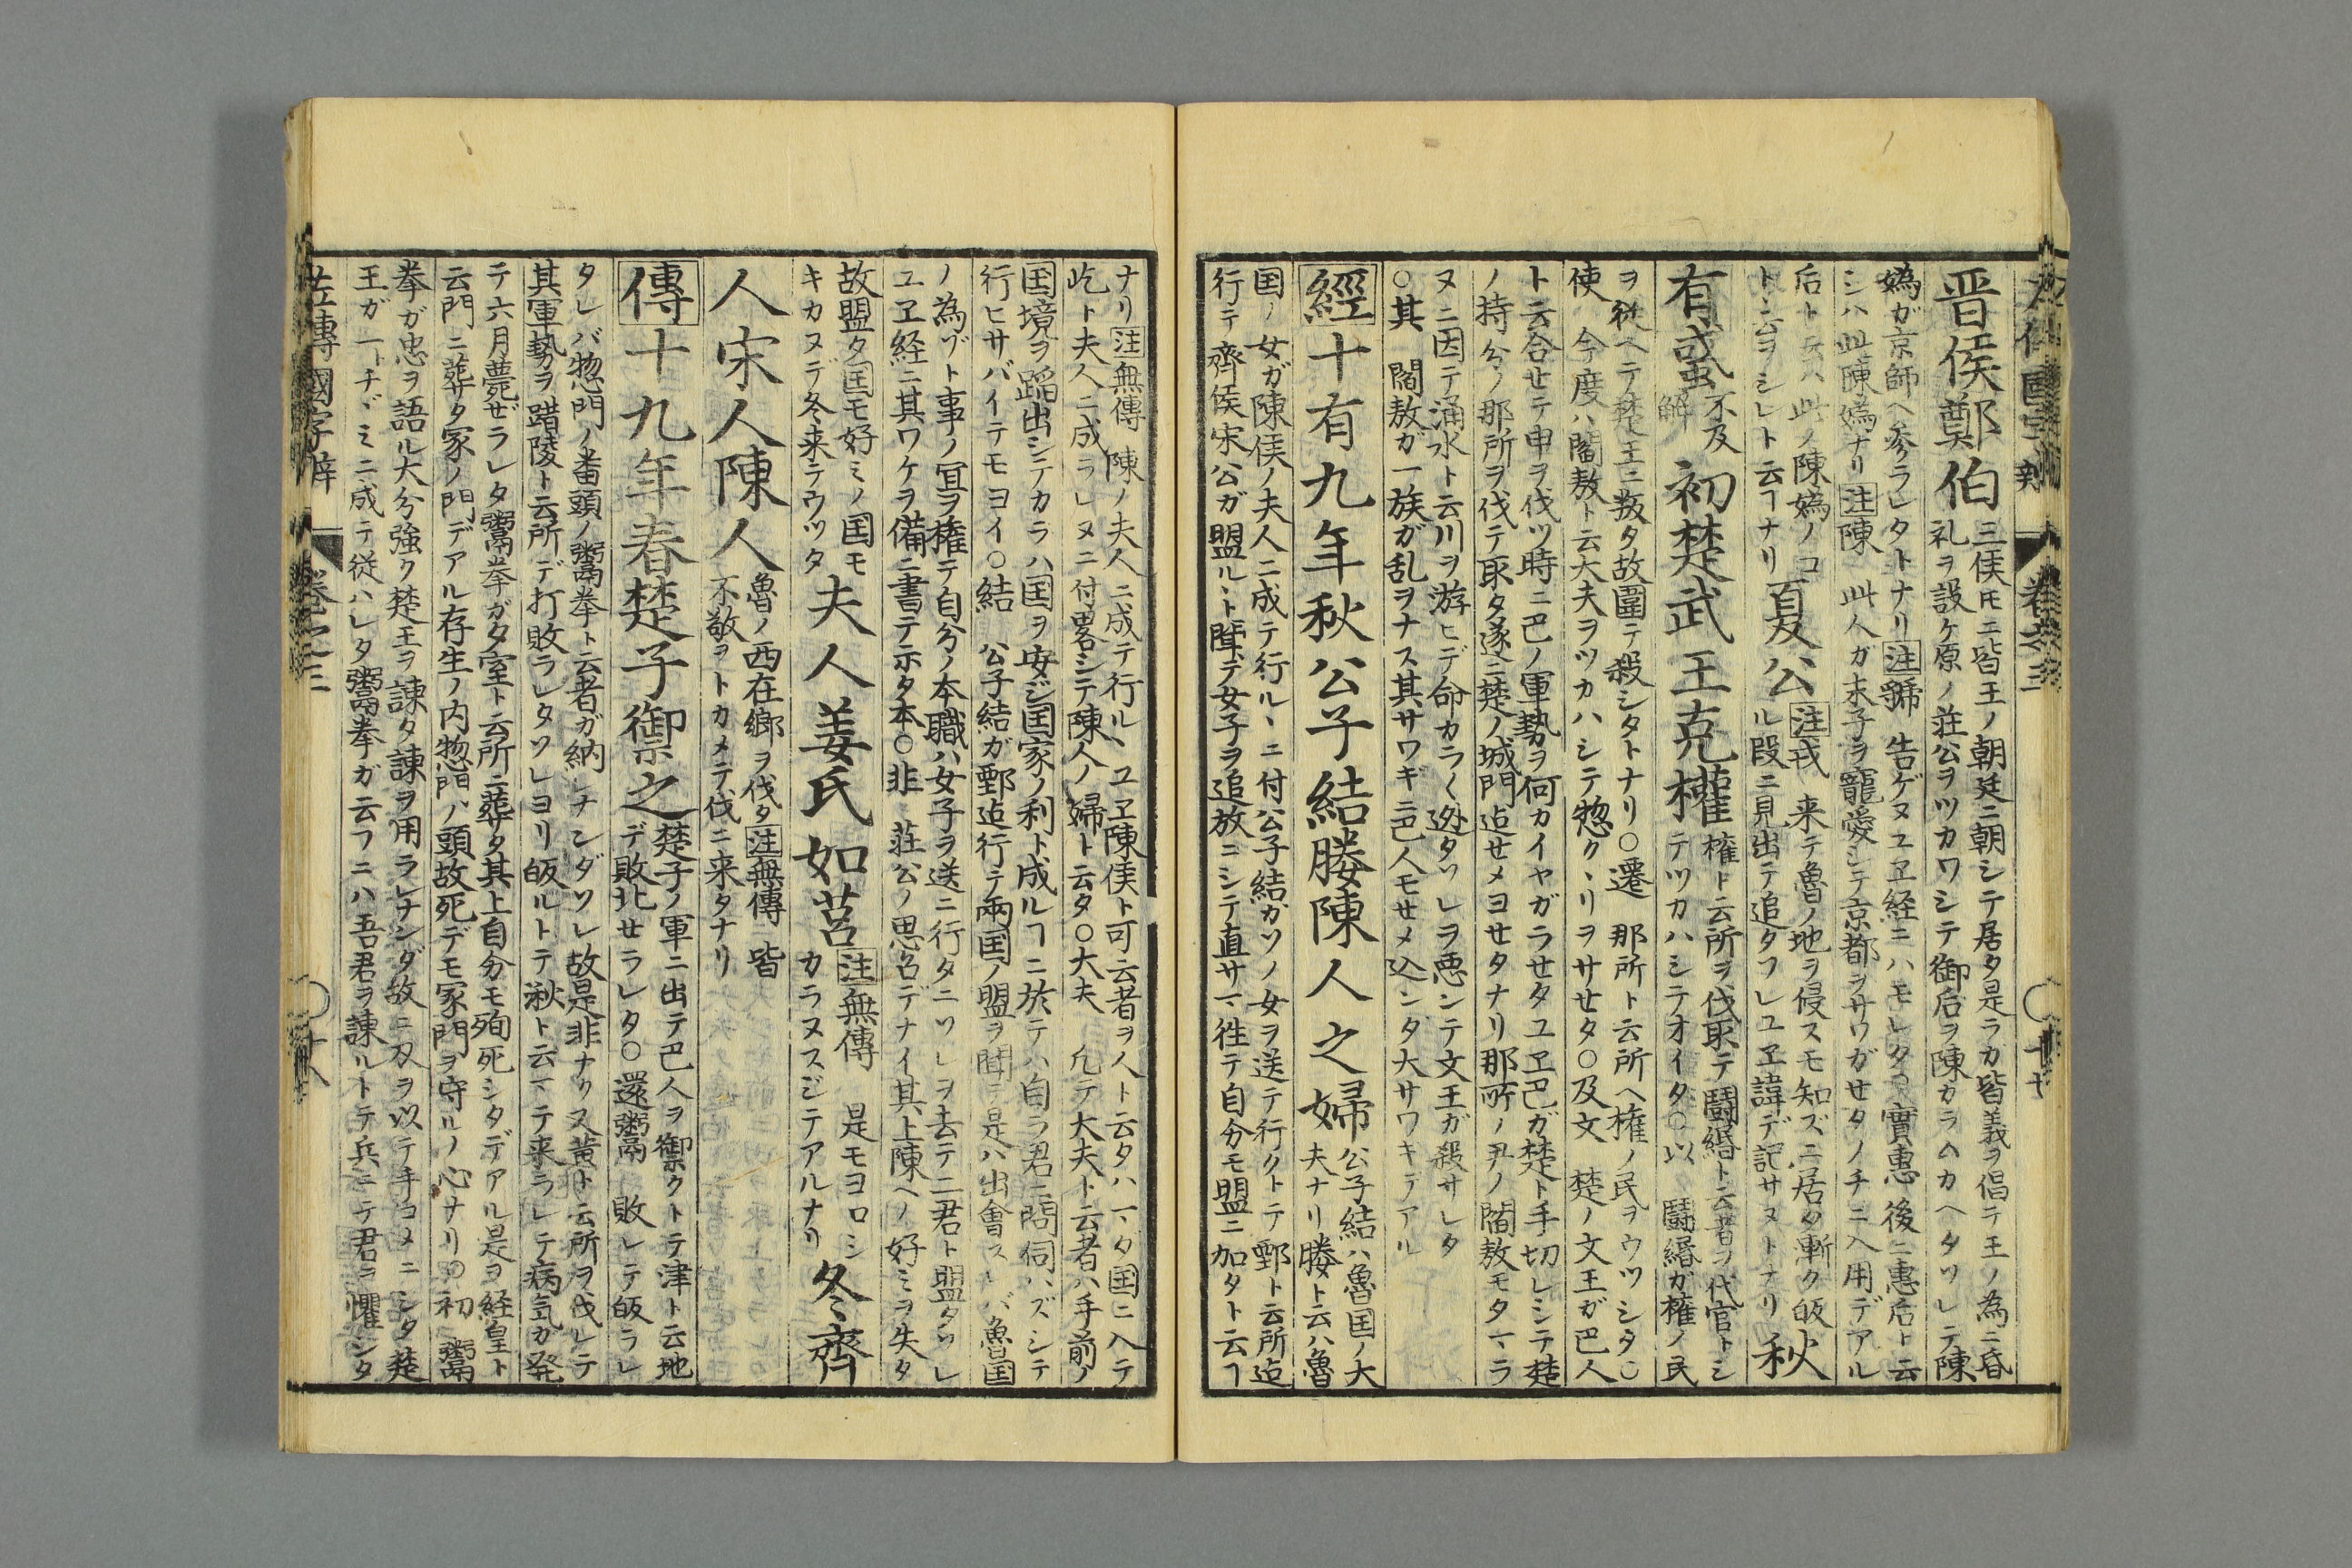 晋侯鄭伯
三侯トモニ皆王ノ朝廷ニ朝シテ居タ是ラガ皆義ヲ倡テ王ノ為ニ昏
礼ヲ設ケ原ノ荘公ヲツカワシテ御后ヲ陳カラムカヘタソレテ陳
媯ガ京師ヘ参ラレタトナリ注虢 告ゲヌユヱ経ニハモレタ 實惠 後ニ惠后ト云
シハ此陳媯ナリ注陳 此人ガ末子ヲ寵愛シテ京都ヲサワガセタノチニ入用デアル
后ト云ハ此ノ陳媯ノコ
トヽ云ヲシレト云ヿナリ
夏公
注戎 来テ魯ノ地ヲ侵スモ知ズニ居タ漸ク皈
ル段ニ見出テ追タフレユヱ諱デ記サヌトナリ
秋
有蜮
不及
解
初楚武王克權
権ト云所ヲ伐取テ鬪緡ト云者ヲ代官トシ
テツカハシテオイタ○以 鬪緡ガ権ノ民
ヲ従ヘテ楚王ニ叛タ故圍テ殺シタトナリ○遷 那所ト云所ヘ権ノ民ヲウツシタ○
使 今度ハ閻敖ト云大夫ヲツカハシテ惣クヽリヲサセタ○及文 楚ノ文王ガ巴人
ト云合セテ申ヲ伐ツ時ニ巴ノ軍勢ヲ何カイヤガラセタユヱ巴ガ楚ト手切レシテ楚
ノ持分ノ那所ヲ伐テ取タ遂ニ楚ノ城門迠セメヨセタナリ那所ノ尹ノ閻敖モタマラ
ヌニ因テ涌水ト云川ヲ游ヒデ命カラ〱迯タソレヲ悪ンテ文王ガ殺サレタ
○其 閻敖ガ一族ガ乱ヲナス其サワギニ巴人モセメ込ンダ大サワキテアル
經十有九年秋公子結媵陳人之婦
公子結ハ魯国ノ大
夫ナリ媵ト云ハ魯
国ノ女ガ陳侯ノ夫人ニ成テ行ルヽニ付公子結ガソノ女ヲ送テ行クトテ鄄ト云所迠
行テ齊侯宋公ガ盟ルヽト聞テ女子ヲ追放ニシテ直サマ徃テ自分モ盟ニ加タト云ヿ
ナリ注無傳 陳ノ夫人ニ成テ行ルヽユヱ陳侯ト可云者ヲ人ト云タハマダ国ニ入テ
屹ト夫人ニ成ラレヌニ付畧シテ陳人ノ婦ト云タ○大夫 凡テ大夫ト云者ハ手前ノ
国境ヲ蹈出シテカラハ国ヲ安ジ国家ノ利ト成ルヿニ於テハ自ラ君ニ問伺ハズシテ
行ヒサバイテモヨイ○結 公子結ガ鄄迠行テ兩国ノ盟ヲ聞テ是ハ出會スレバ魯国
ノ為ヅト事ノ冝ヲ権テ自分ノ本職ハ女子ヲ送ニ行タニソレヲ去テ二君ト盟タソレ
ユヱ経ニ其ワケヲ備ニ書テ示タ本○非 荘公ノ思召デナイ其上陳ヘノ好ミヲ失タ
故盟タ国モ好ミノ国モ
キカヌデ冬来テウツタ
夫人姜氏如莒
注無傳 是モヨロシ
カラヌスジテアルナリ
冬齊
人宋人陳人
魯ノ西在郷ヲ伐タ注無傳 皆
不敬ヲトカメテ伐ニ来タナリ
傳十九年春楚子禦之
楚子ノ軍ニ出テ巴人ヲ禦クトテ津ト云地
デ敗北セラレタ○還鬻 敗レテ皈ラレ
タレバ惣門ノ番頭ノ鬻拳ト云者ガ納レナンダソレ故是非ナク又黄ト云所ヲ伐レテ
其軍勢ヲ踖陵ト云所デ打敗ラレタソレヨリ皈ルトテ湫ト云マテ来ラレテ病気ガ発
テ六月薨ゼラレタ鬻拳ガ夕室ト云所ニ葬タ其上自分モ殉死シタデアル是ヲ経皇ト
云門ニ葬タ家ノ門デアル存生ノ内惣門ノ頭故死デモ冢門ヲ守ルノ心ナリ○初 鬻
拳ガ忠ヲ語ル大分強ク楚王ヲ諌タ諌ヲ用ラレナンダ故ニ刄ヲ以テ手ゴメニシタ楚
王ガ一トチヾミニ成テ従ハレタ鬻拳ガ云フニハ吾君ヲ諌ルトテ兵ニテ君ヲ懼シタ
左傳國字解 巻之三 ○十八